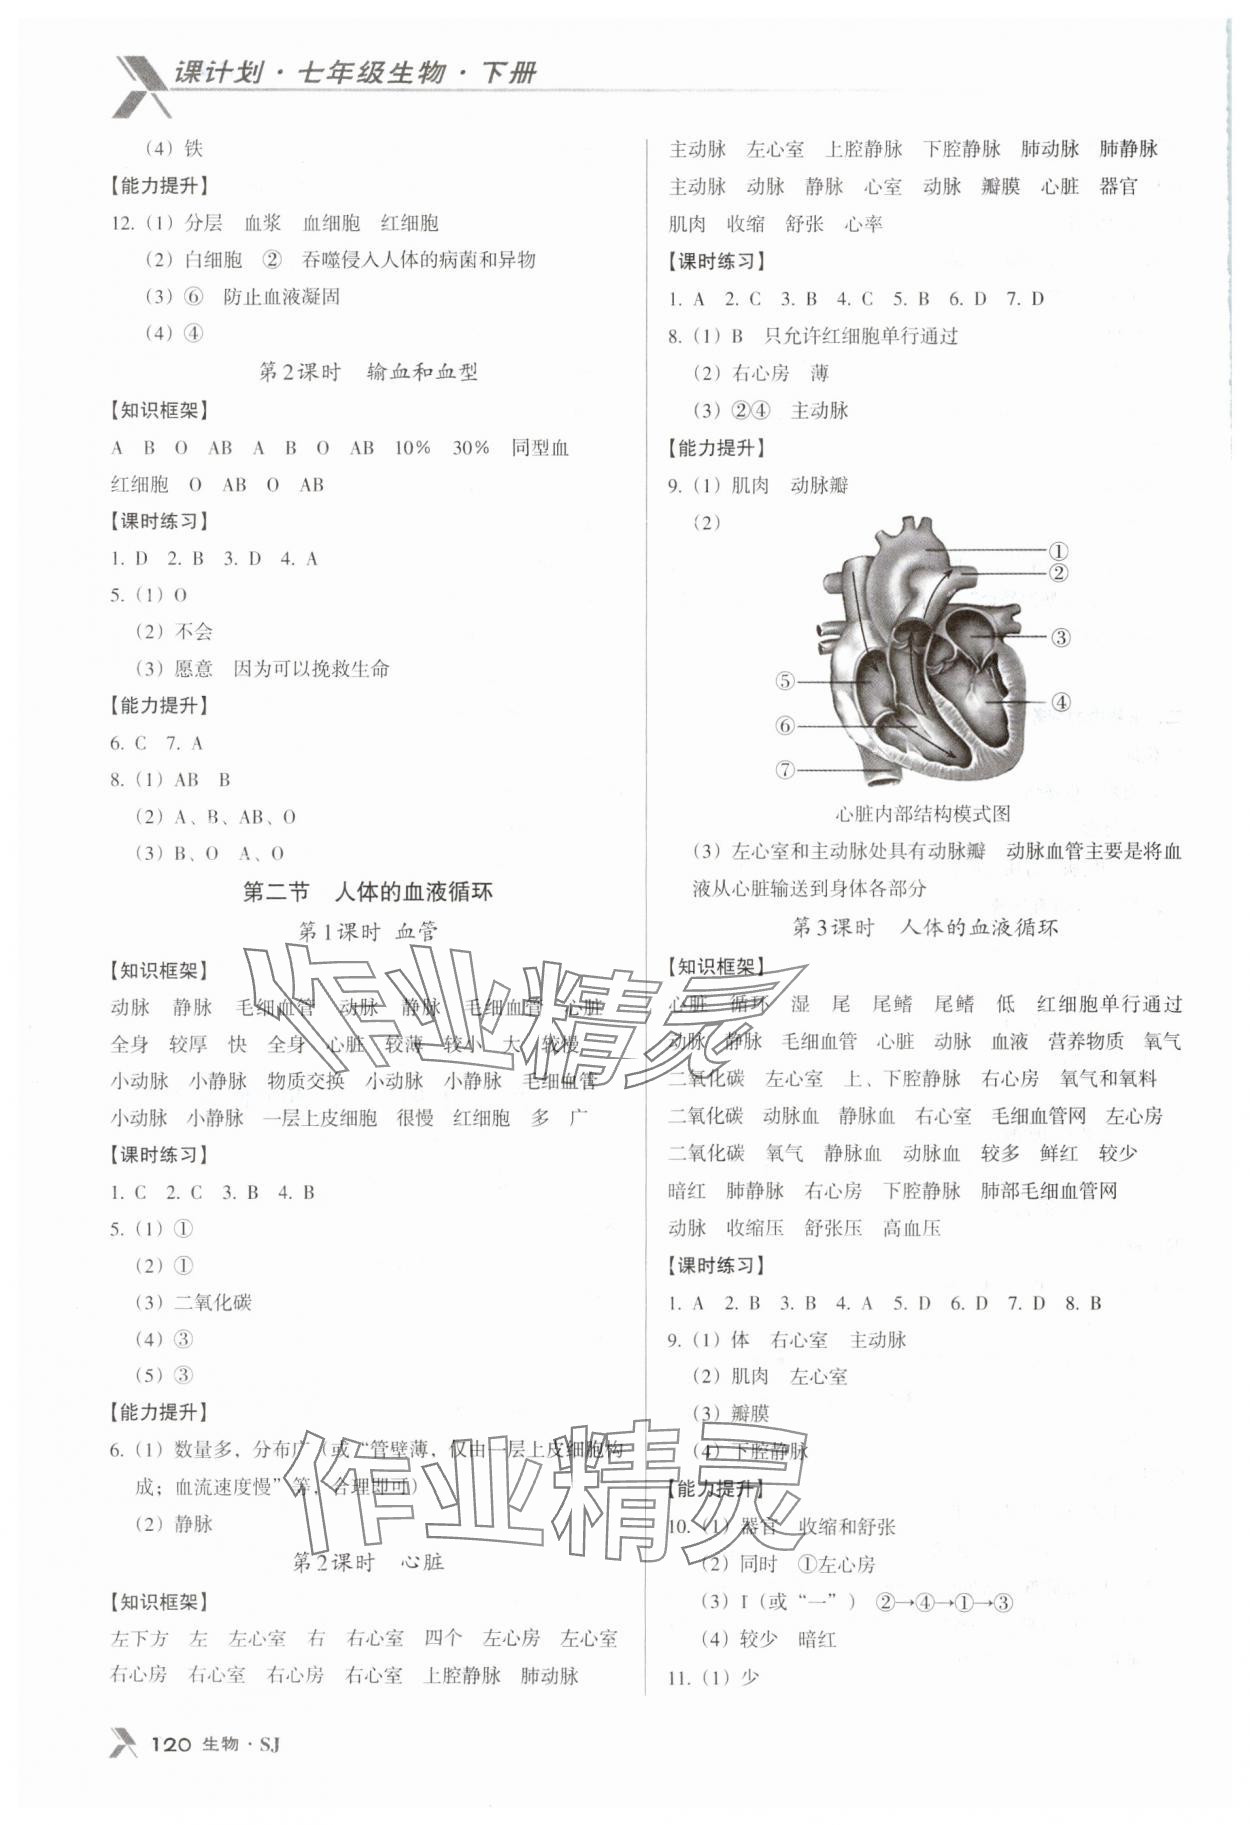 课计划·七年级生物·下册
(4) 铁
【能力提升】
12. (1) 分层 血浆 血细胞 红细胞
(2) 白细胞 ② 吞噬侵入人体的病菌和异物
(3) ⑥ 防止血液凝固
(4) ④
第2课时 输血和血型
【知识框架】
A B O AB A B O AB 10% 30% 同型血
红细胞 O AB O AB
【课时练习】
1. D 2. B 3. D 4. A
5. (1) O
(2) 不会
(3) 愿意 因为可以挽救生命
【能力提升】
6. C 7. A
8. (1) AB B
(2) A、B、AB、O
(3) B、O A、O
第二节 人体的血液循环
第1课时 血管
【知识框架】
动脉 静脉 毛细血管 动脉 静脉 毛细血管 心脏
全身 较厚 快 全身 心脏 较薄 较小 大 较慢
小动脉 小静脉 物质交换 小动脉 小静脉 毛细血管
小动脉 小静脉 一层上皮细胞 很慢 红细胞 多 广
【课时练习】
1. C 2. C 3. B 4. B
5. (1) ①
(2) ①
(3) 二氧化碳
(4) ③
(5) ③
【能力提升】
6. (1) 数量多，分布广（或“管壁薄，仅由一层上皮细胞构
成；血流速度慢”等，合理即可）
(2) 静脉
第2课时 心脏
【知识框架】
左下方 左 左心室 右 右心室 四个 左心房 左心室
右心房 右心室 右心房 右心室 上腔静脉 肺动脉
主动脉 左心室 上腔静脉 下腔静脉 肺动脉 肺静脉
主动脉 动脉 静脉 心室 动脉 瓣膜 心脏 器官
肌肉 收缩 舒张 心率
【课时练习】
1. A 2. C 3. B 4. C 5. B 6. D 7. D
8. (1) B 只允许红细胞单行通过
(2) 右心房 薄
(3) ②④ 主动脉
【能力提升】
9. (1) 肌肉 动脉瓣
(2)
①
②
③
④
⑤
⑥
⑦
心脏内部结构模式图
(3) 左心室和主动脉处具有动脉瓣 动脉血管主要是将血
液从心脏输送到身体各部分
第3课时 人体的血液循环
【知识框架】
心脏 循环 湿 尾 尾鳍 尾鳍 低 红细胞单行通过
动脉 静脉 毛细血管 心脏 动脉 血液 营养物质 氧气
二氧化碳 左心室 上、下腔静脉 右心房 氧气和氧料
二氧化碳 动脉血 静脉血 右心室 毛细血管网 左心房
二氧化碳 氧气 静脉血 动脉血 较多 鲜红 较少
暗红 肺静脉 右心房 下腔静脉 肺部毛细血管网
动脉 收缩压 舒张压 高血压
【课时练习】
1. A 2. B 3. B 4. A 5. D 6. D 7. D 8. B
9. (1) 体 右心室 主动脉
(2) 肌肉 左心室
(3) 瓣膜
(4) 下腔静脉
【能力提升】
10. (1) 器官 收缩和舒张
(2) 同时 ①左心房
(3) I（或“一”） ②→④→①→③
(4) 较少 暗红
11. (1) 少
120 生物·SJ
作业精灵
作业精灵